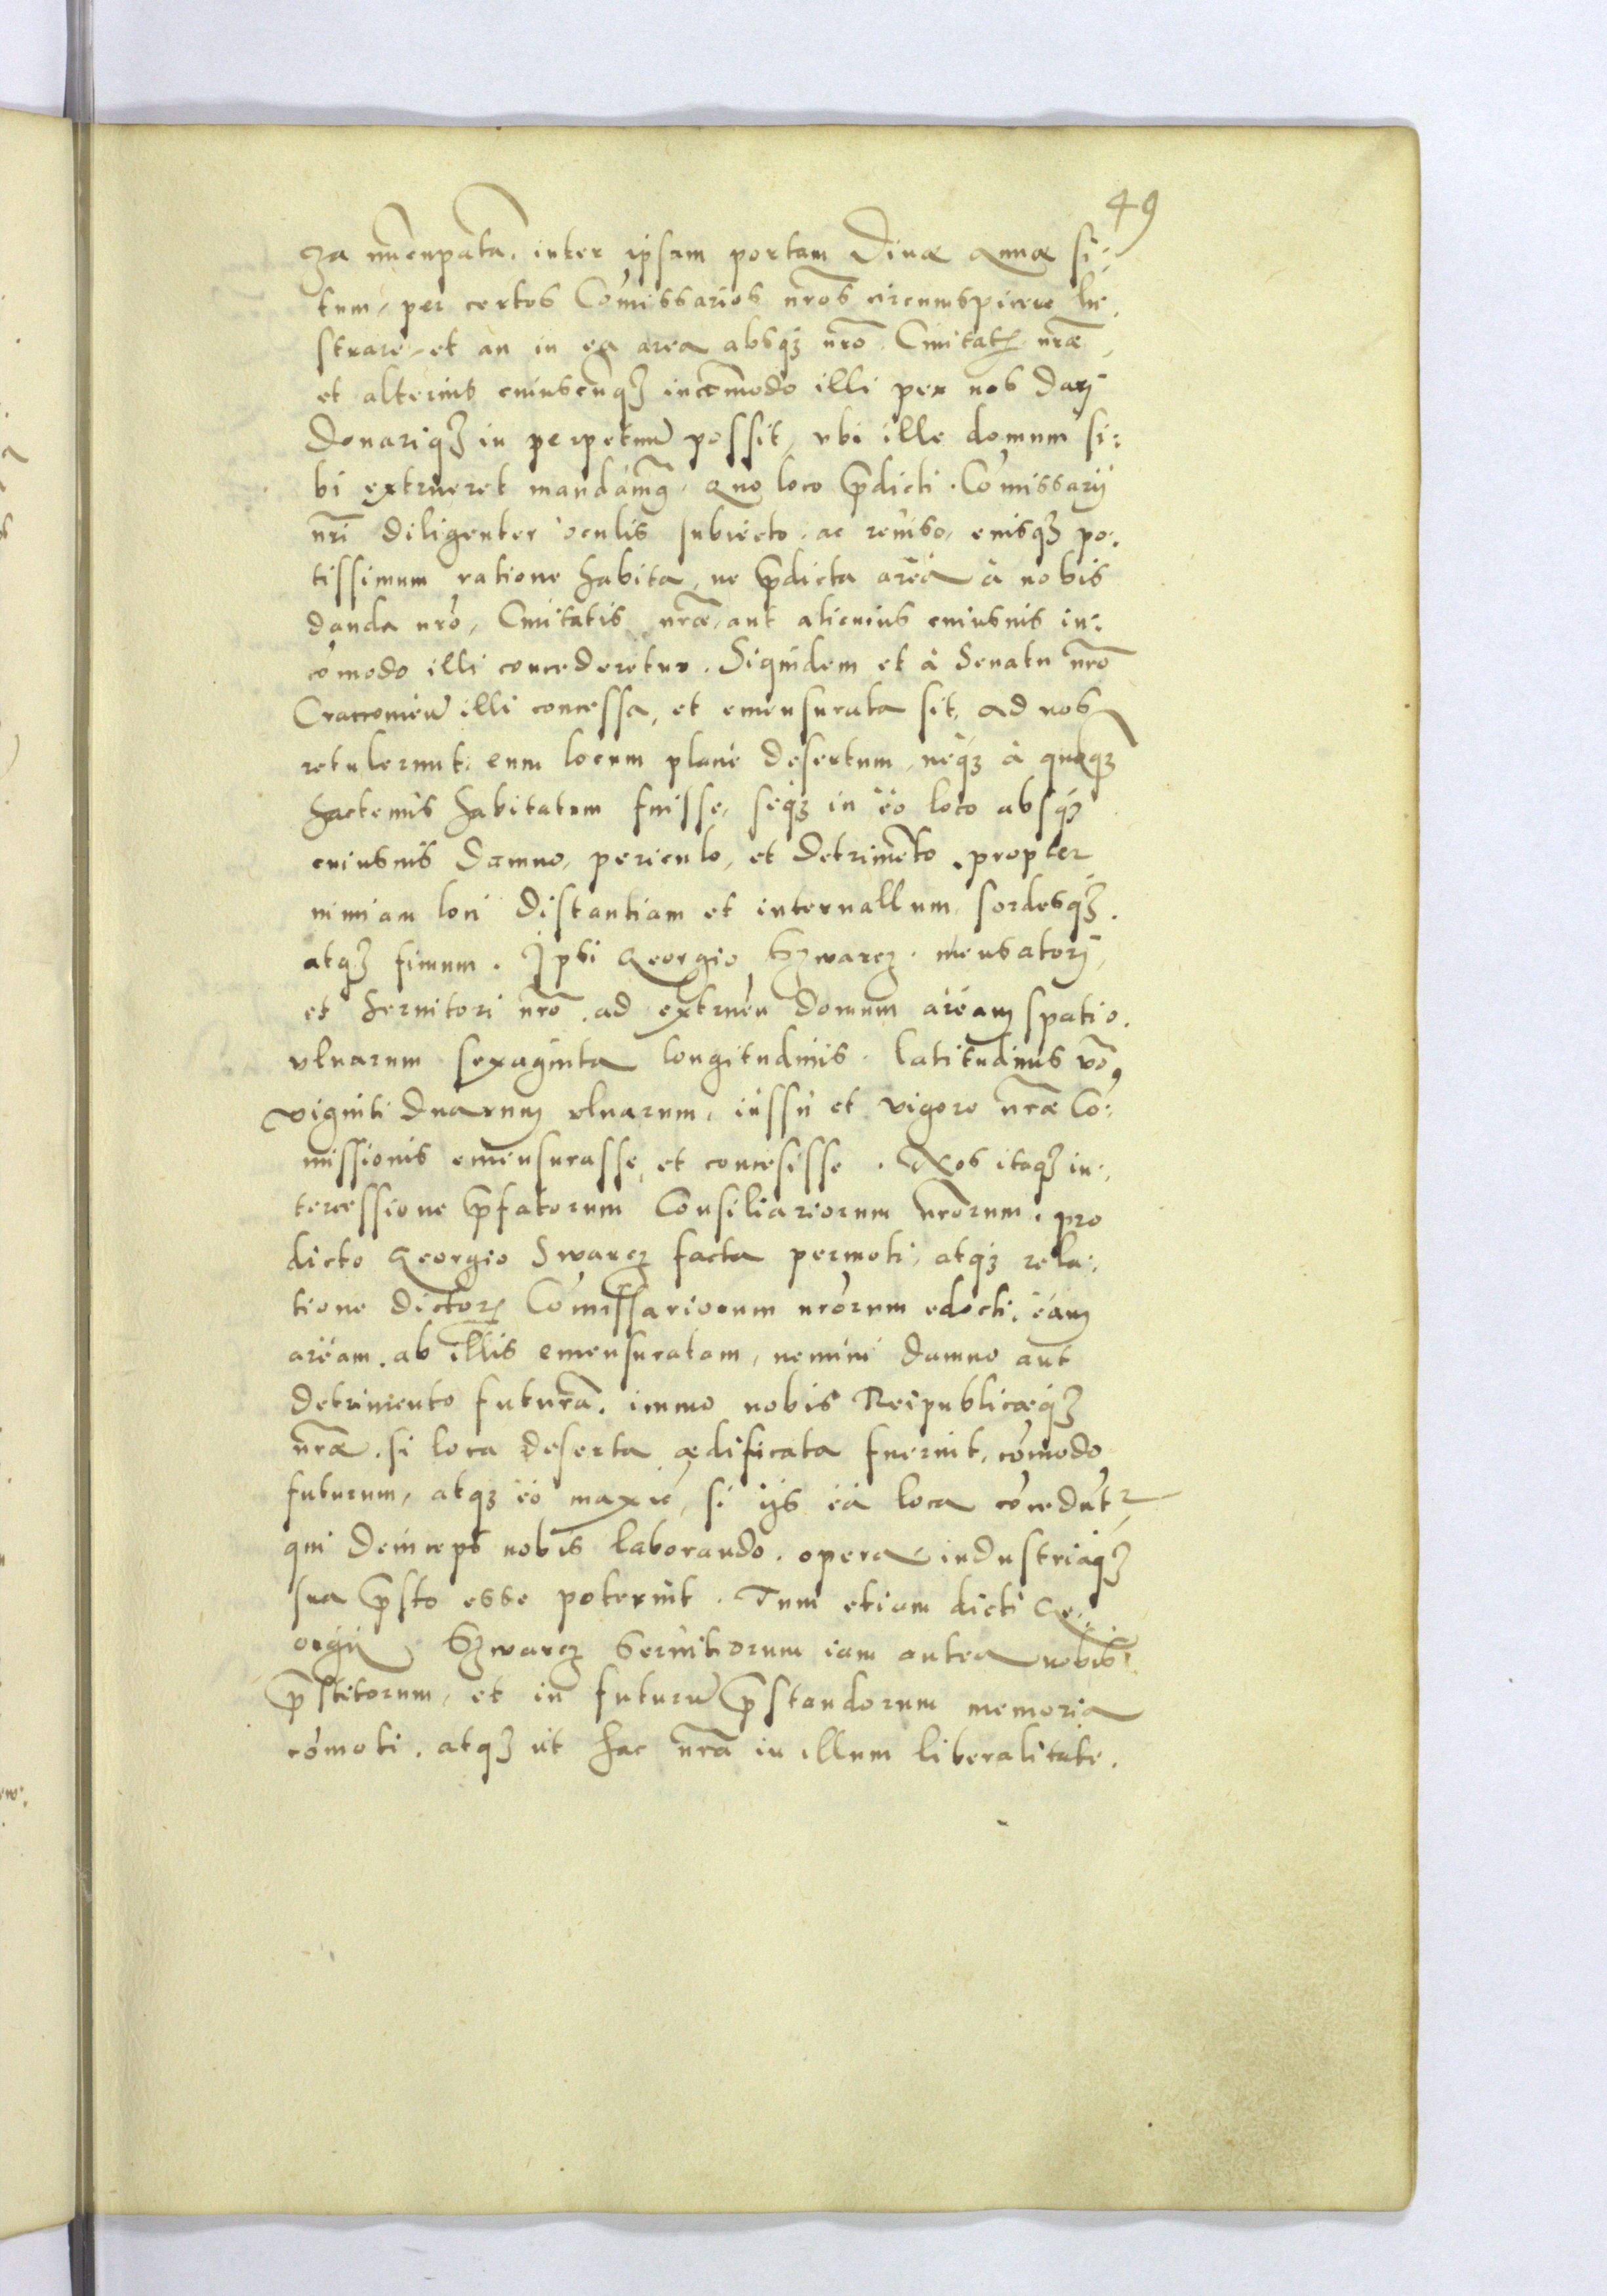 49
za nūcupata, inter ipsam portam Diuæ Annæ si:
tum, per certos Cōmissarios nr̄os circumspicere lu:
strare, et an in ea area absq₃ nr̄o Ciuitatꝭ nr̄æ,
et alterius cuiuscunq₃ incōmodo illi per nos dari
donariq₃ in perpetuū possit, vbi ille domum si:
bi extrueret mandāmꝰ. Quo loco p̄dicti Cōmissarij
nr̄i diligenter oculis subiecto, ac reuiso, eiusq₃ po:
tissimum ratione habita, ne p̄dicta area à nobis
danda nr̄o, Ciuitatis nr̄æ, aut alicuius cuiusuis in:
cōmodo illi concederetur. Siquidem et à Senatu nr̄o
Craccouieñ illi concessa, et emensurata sit, ad nos
retulerunt, eum locum planè desertum, neq₃ à quoq₃
hactenus habitatum fuisse, seq₃ in eo loco absq₃
cuiusuis damno, periculo, et detrimēto, propter
nimiam loci distantiam et interuallum, sordesq₃.
atq₃ fimum. Ipsi Georgio Szwarcz mensatori,
et seruitori nr̄o ad extrueñ domum aream spatio.
vlnarum sexaginta longitudinis, latitudinis vō,
viginti duarum vlnarum, iussu et vigore nr̄æ Co:
missionis emensurasse, et concesisse. Nos itaq₃ in:
tercessione p̄fatorum Consiliariorum nr̄orum, pro
dicto Georgio Swarcz facta permoti, atq₃ rela:
tione dictorꝝ Cōmissariorum nr̄orum edocti, eam
aream ab illis emensuratam, nemini damno aut
detrimento futurā, immo nobis Reipublicæq₃
nr̄æ, si loca deserta ædificata fuerint, cōmodo
futurum, atq₃ eo maxīe, si ijs ea loca cōcedūtr
qui deinceps nobis laborando, opera industriaq₃
sua p̄sto esse poterint. Tum etiam dicti Ge:
orgij Szwarcz Seruitiorum iam antea nobis
p̄stitorum, et in futurū p̄standorum memoria
cōmoti, atq₃ ut hac nr̄a in illum liberalitate.